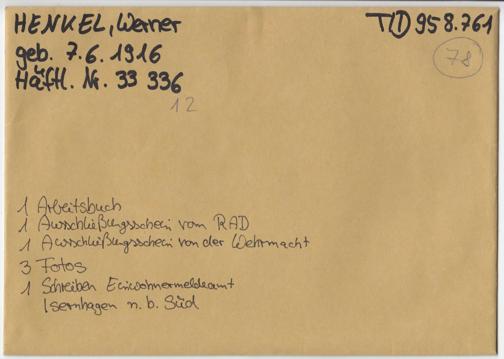 HENKEL, Werner
geb. 7.6.1916
Häftl. Nr. 33 336
12
T/D 958.761
78
1 Arbeitsbuch
1 Ausschließungsschein vom RAD
1 Ausschließungsschein von der Wehrmacht
3 Fotos
1 Schreiben Einwohnermeldeamt
Isernhagen n. b. Süd